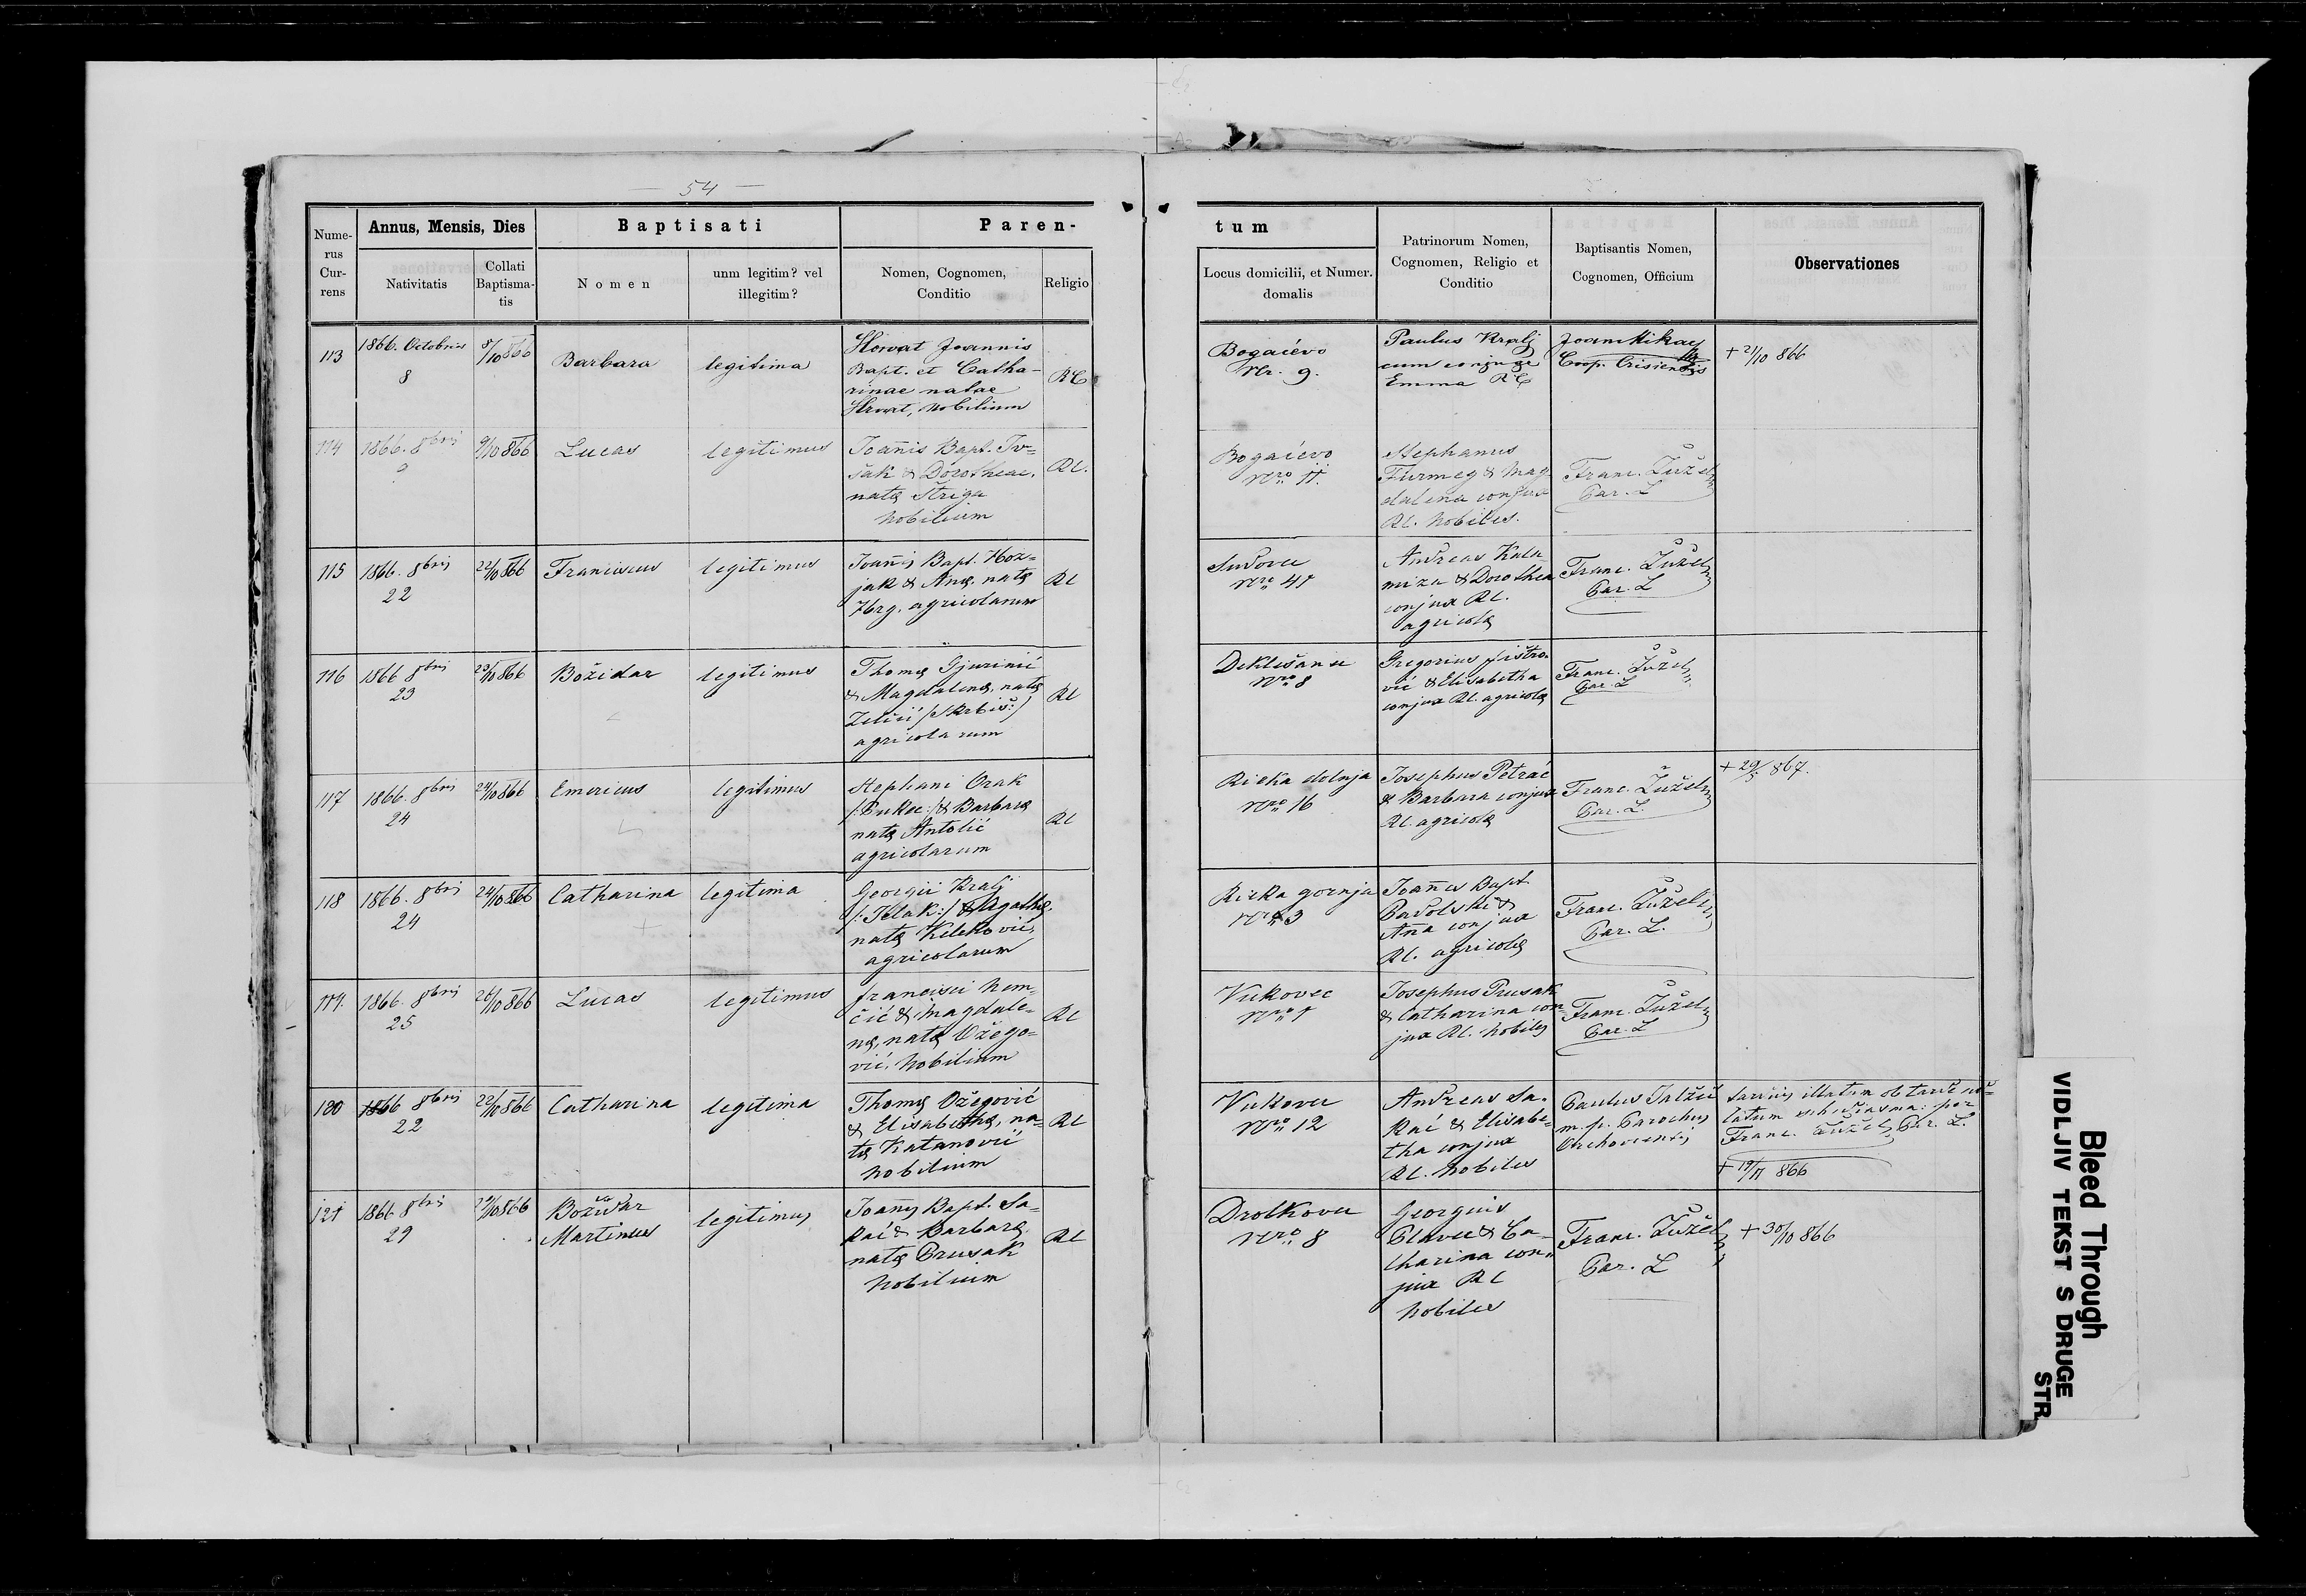 — 54 —
Nume-
rus
Cur-
rens
Annus, Mensis, Dies
Nativitatis
Collati
Baptisma-
tis
Baptisati
Nomen
unm legitim? vel
illegitim?
Paren-
Nomen, Cognomen,
Conditio
Religio
tum
Locus domicilii, et Numer.
domalis
Patrinorum Nomen,
Cognomen, Religio et
Conditio
Baptisantis Nomen,
Cognomen, Officium
Observationes
113
1866. Octobris
8
8/10 866
Barbara
legitima
Horvat Joannis
Bapt. et Catha-
rinae natae
Horvat, Nobilium
RC
Bogaićvo
Nr. 9.
Paulus Kralj
cum conjuge
Emma RC
Joan Mikac
Coop. Crisiensis
+ 21/10 866
114
1866. 8bris
9
9/10 866
Lucas
legitimus
Joannis Bapt. Iv=
šak & Dorotheae,
natę Štriga
Nobilium
RC.
Bogaićvo
Nro 11.
Stephanus
Furmeg & Mag-
dalena conjux
RC. Nobiles.
Franc. Žužel
Par. L
115
1866. 8bris
22
22/10 866
Franciscus
legitimus
Joannis Bapt. Hor=
jak & Anę, natę
Hrg, agricolarum
RC
Sudovec
Nro 41
Andreas Kala
miza & Dorothea
conjux RC.
agricolę
Franc. Žužel
Par. L
116
1866 8bris
23
23/10 866
Božidar
legitimus
Thomę Gjurinić
& Magdalenę, natę
Zelčić /Skrbiš:/
agricolarum
RC
Deklešanec
Nro 8
Gregorius Pištro-
vić & Elisabetha
conjux RC. agricolę
Franc. Žužel
Par. L
117
1866. 8bris
24
24/10 866
Emericus
legitimus
Stephani Orak
/:Pukec:/ & Barbarę
natę Antolić
agricolarum
RC
Rieka dolnja
Nro 16
Josephus Petrać
& Barbara conjux
RC. agricolę
Franc. Žužel
Par. L.
+ 29/5 867.
118
1866. 8bris
24
24/10 866
Catharina
legitima
Georgii Kralj
/:Jelak:/ & Agathę,
natę Keleković,
agricolarum
Rieka gornja
Nro 3
Joannes Bapt
Padolski &
Ana conjux
RC. agricolę
Franc. Žužel
Par. L.
119.
1866. 8bris
25
26/10 866
Lucas
legitimus
Francisci Nem=
čić & Magdale=
nę, natę Ožego=
vić, Nobilium
RC
Vukovec
Nro 1
Josephus Prusak
& Catharina con=
jux RC. Nobiles
Franc. Žužel
Par. L
120
1866 8bris
22
22/10 866
Catharina
legitima
Thomę Ožegović
& Elisabethę, na=
tę Katanović
Nobilium
RC
Vukovec
Nro 12
Andreas Sa-
kać & Elisabe=
tha conjux
RC. Nobiles
Paulus
m. p. Parochus
Orehovensis
illatum ob tarde
latum
Franc. Žužel, Par. L.
+ 19/11 866
121
1866 8bris
29
29/10 866
Božidar
Martinus
legitimus
Joannis Bapt. Sa=
kać & Barbarę
natę Prusak
Nobilium
RC
Drolkovec
Nro 8
Georgius
Plavec & Ca=
tharina con=
jux RC
Nobiles
Franc. Žužel
Par. L
+ 30/10 866
Bleed Through
VIDLJIV TEKST S DRUGE
STR